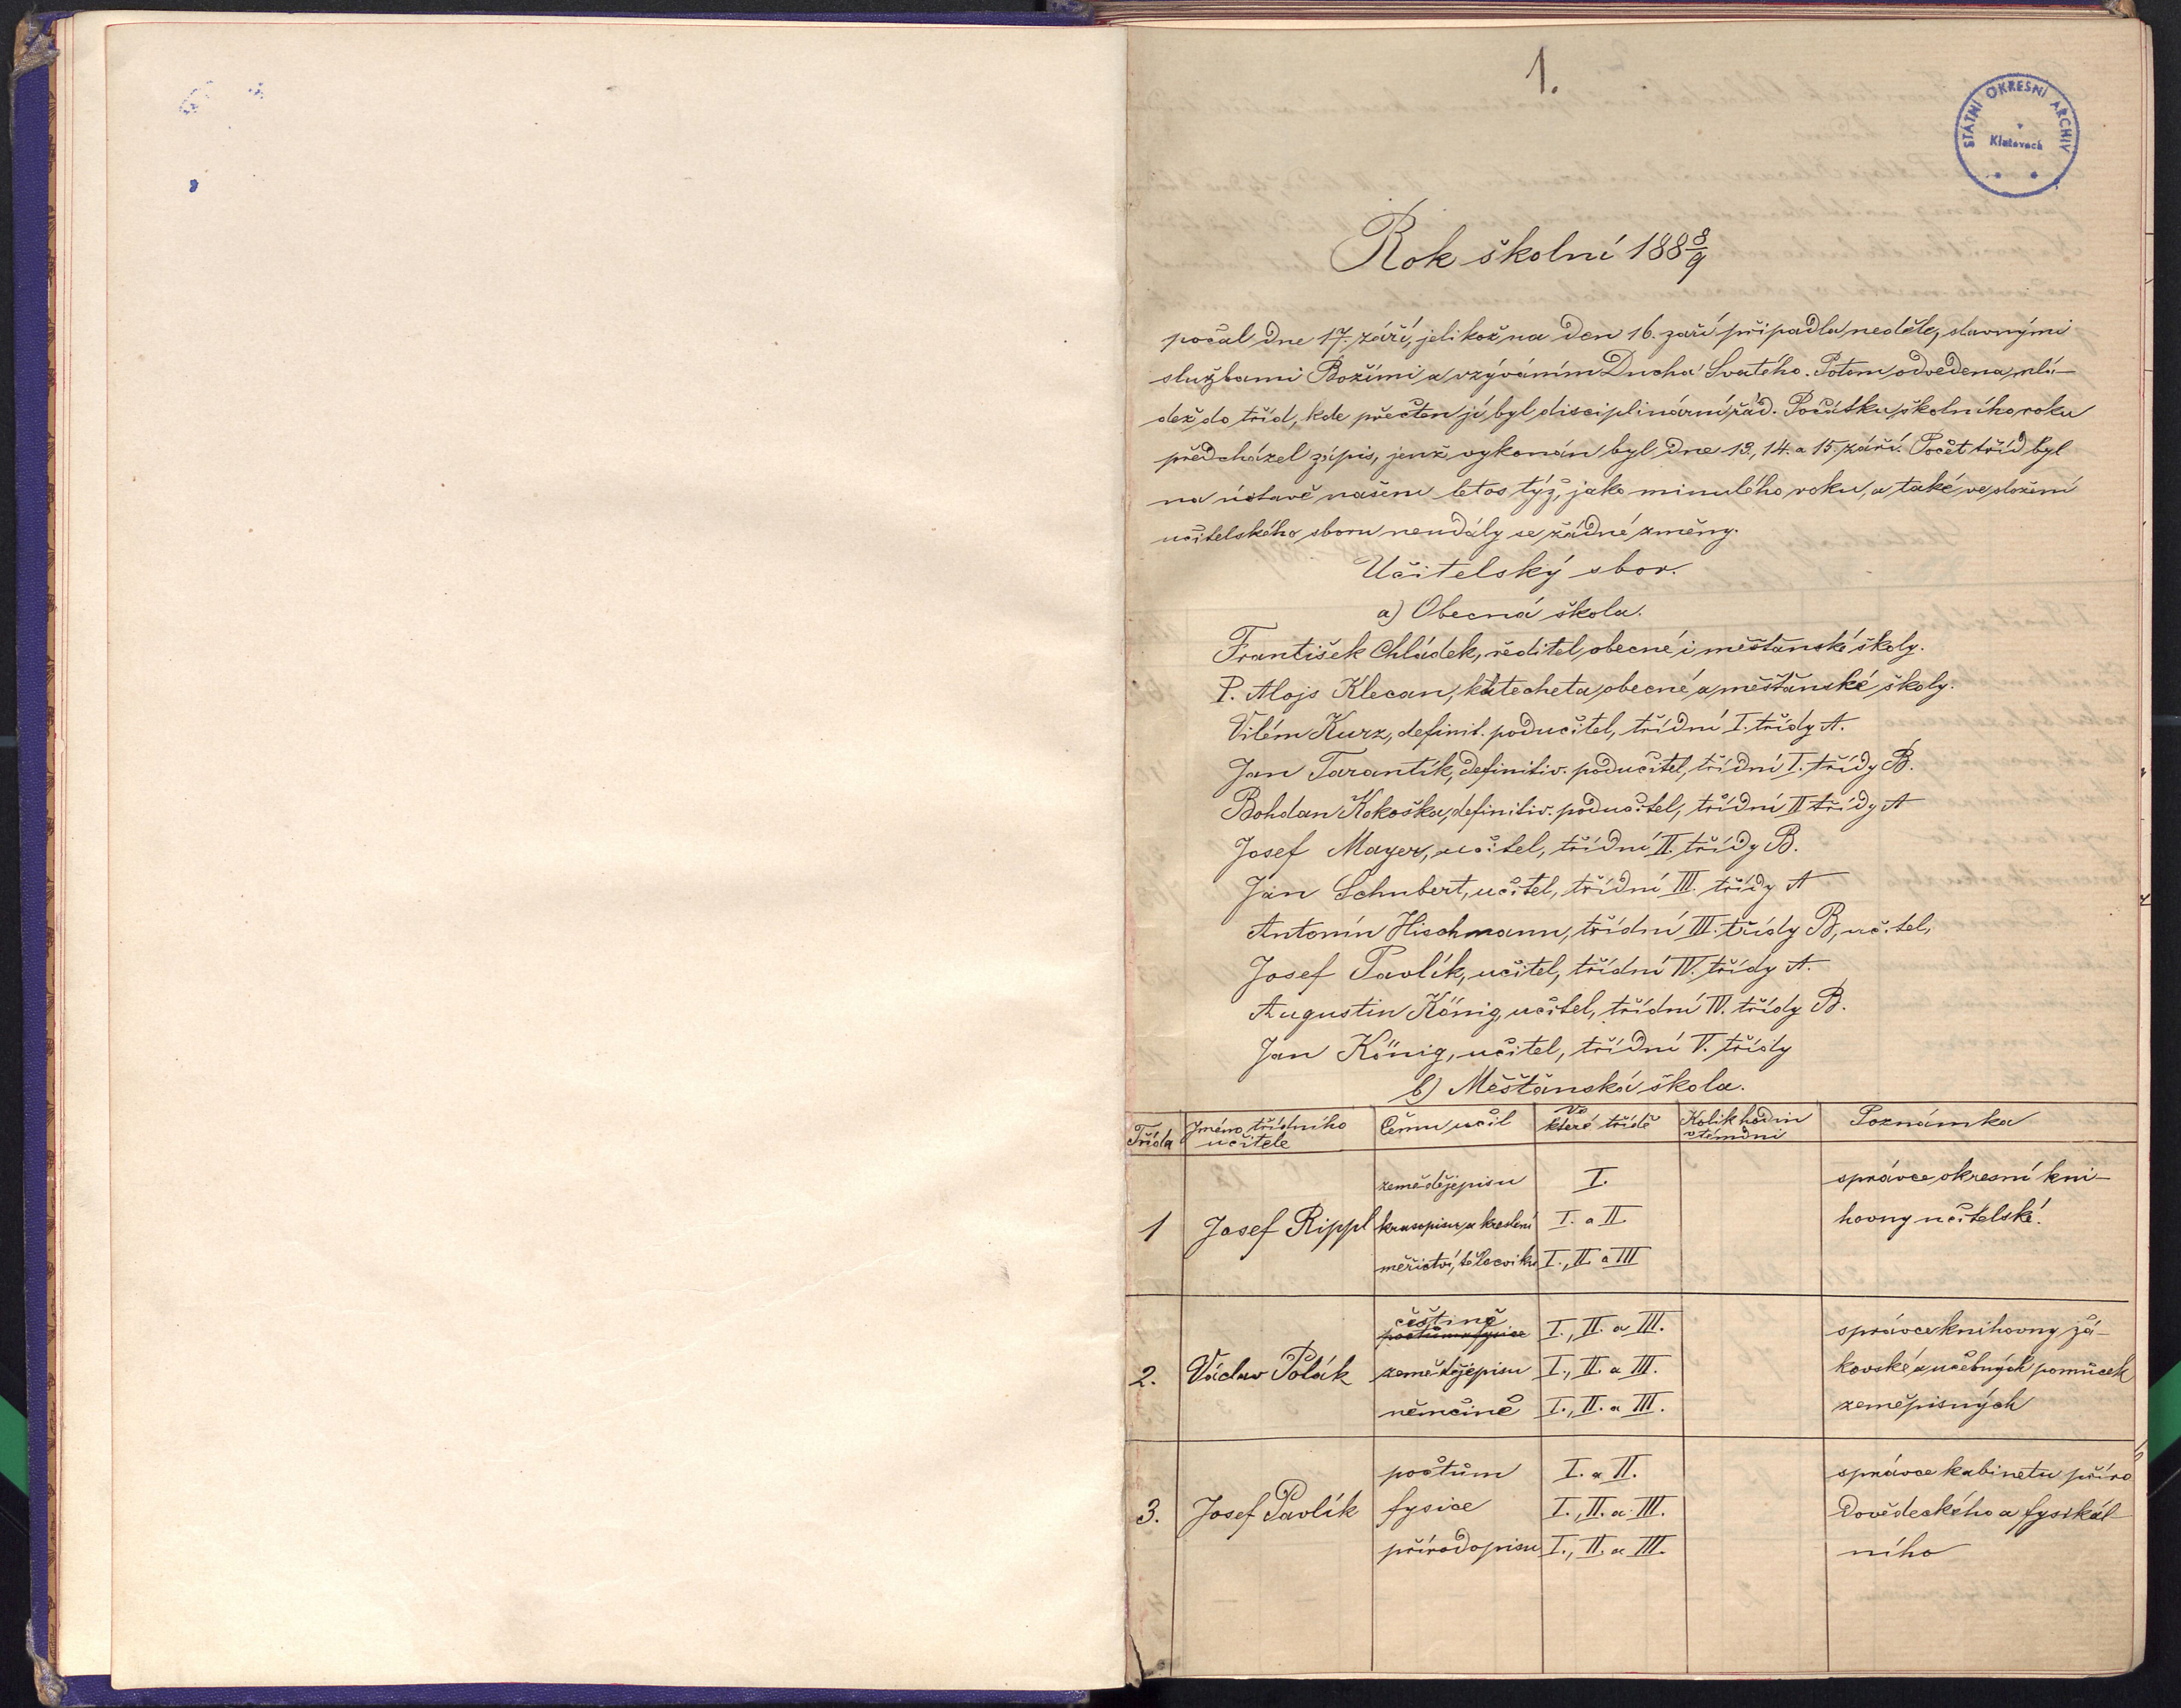 1.
STÁTNÍ OKRESNÍ ARCHIV
v
Klatovech
Rok školní 188 8/9
počal dne 17. září, jelikož na den 16. září připadla neděle, slavnými
službami Božími a vzýváním Ducha Svatého. Potom odvedena mlá-
dež do tříd, kde přečten jí byl disciplinární řád. Počátku školního roku
předcházel zápis, jenž vykonán byl dne 13., 14. a 15. září. Počet tříd byl
na ústavě našem letos týž, jako minulého roku, a také ve složení
učitelského sboru neudály se žádné změny.
Učitelský sbor.
a) Obecná škola.
František Chládek, ředitel obecné i měšťanské školy.
P. Alojs Klecan, katecheta obecné a měšťanské školy.
Vilém Kurz, definit. podučitel, třídní I. třídy A.
Jan Tarantík, definitiv. podučitel, třídní I. třídy B.
Bohdan Kokoška, definitiv. podučitel, třídní II třídy A
Josef Mayer, učitel, třídní II. třídy B.
Jan Schubert, učitel, třídní III. třídy A
Antonín Hischmann, třídní III. třídy B, učitel,
Josef Pavlík, učitel, třídní IV. třídy A.
Augustin König, učitel, třídní IV. třídy B.
Jan König, učitel, třídní V. třídy
b) Měšťanská škola.
Třída Jméno třídního učitele Čemu učil Ve které třídě Kolik hodin v témdni Poznámka
zemědějepisu I. správce okresní kni-
1 Josef Rippl krasopisu a kreslení I. a II hovny učitelské.
měřictví, tělocviku I., II. a III
češtině
počtům a fysice I., II. a III. správce knihovny žá-
2. Václav Polák zemědějepisu I., II. a III. kovské a učebných pomůcek
němčině I., II. a III. zeměpisných
počtům I. a II. správce kabinetu příro
3. Josef Pavlík fysice I., II. a III. dovědeckého a fysikál
přírodopisu I., II. a III. ního